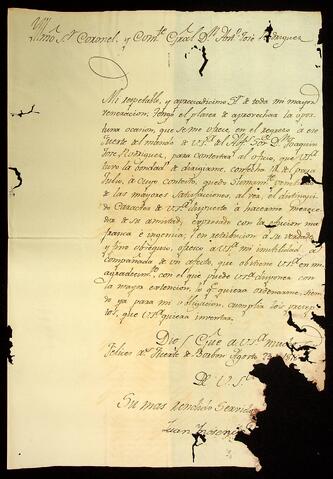 Yllmô Sôr Coronel, y Comte Gral Dn Antº José Rodriguez
Mi respetable, y apreciadicimo Sr de toda mi mayor
veneracion: Tengo el placer de aprovechar la opor
tuna ocasion, que se me ofrece, en el regreso a ese
Fuerte del mando de VSª, del Alfz Sôr Dn Joaquin
José Rodriguez, para contextar al oficio, que VSª
tuvo la bondad de dirigirme, con fecha 18 de
Julio, a cuyo contexto, quedo
de las mayores Satisfacciones, al ver, el distingui
do Caracter de VSª dispuesto, a hacerme merece
dor de su amistad, expresado con la oferta mas
franca e ingenua; y en retribucion a su verdadero
y fino obsequio, ofresco a VSª mi inutilidad, a
compañada de un afecto, que obtiene VSª en mi
agradecimto, con el que puede VSª disponer, con
la mayor extencion, lo qe quiera ordenarme, sien
do ya para mi obligacion, cumplir los precep
tos, que VSª quiera imventar.
Dios Gue a VSª muchos
Felices as. Fuerte de Borbon Agosto
De VSª
Su mas rendido Servidor
Juan